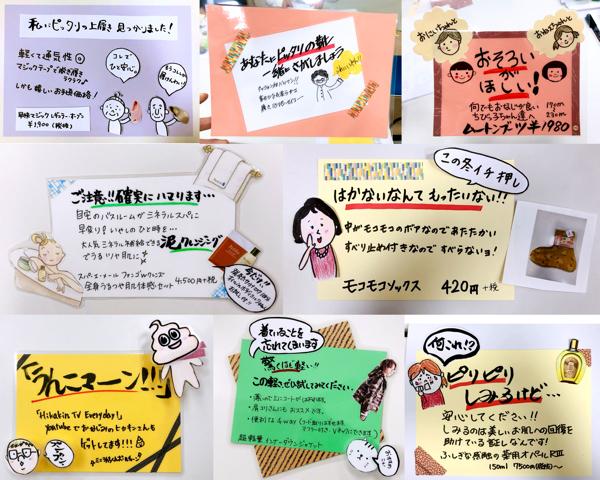 私にピッタリの上履き見つかりました!
軽くて通気性◎
マジックテープで脱ぎ履き
ラクラク♪
しかも嬉しいお手頃価格!
コレで
ひと安心。
早快マジックレギュラーオープン
¥1,900(税抜)
あなたにピッタリの靴
一緒にさがしましょう
おにいちゃんと
おねえちゃんと
おそろい
が
ほしい!
何でもおなじが良い
ちびっ子ちゃん達へ
ムートンブーツ ¥1980
ご注意!!確実にハマります…
自宅のバスルームがミネラルスパに
早変り!いやしのひと時を…
大人気ミネラル補給もできる泥クレンジング
でうるツヤ肌に
スパ・エ・メール ファンゴWクレンズ
全身うるつや肌体感セット 4,500円+税
この冬イチ押し
はかないなんてもったいない!!
中がモコモコのボアなのであたたかい
すべり止め付きなのですべらないョ!
モコモコソックス 420円+税
うんこマーン!!!
「Hikakin TV Everyday」
ゲットしてます!!!
着ていることを
忘れてしまいます
驚くほど軽い!!
この軽さ、ぜひ試してみてください。
・薄いので上にコートがはおれます。
・肩コリさんにもおススメです。
・便利な4way
超軽量インナーダウンジャケット
何これ!?
ピリピリ
しみるけど…
安心してください!!
しみるのは美しいお肌への回復を
助けている証しなんです!
ふしぎな感触の薬用オパールRⅢ
150ml 7500円(税抜)~